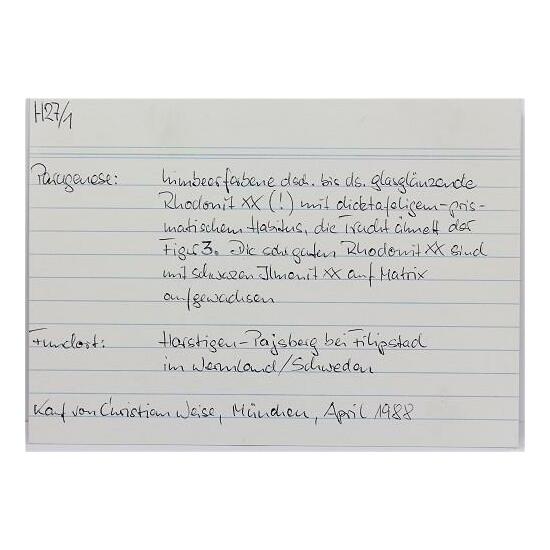 H27/1
Paragenese: himbeerfarbene dsch. bis ds. glasglänzende
Rhodonit XX (!) mit dicktafeligem-pris-
matischem Habitus, die Tracht ähnelt der
Figur 3. Die sehr guten Rhodonit XX sind
mit schwarzen Ilmenit XX auf Matrix
aufgewachsen
Fundort: Harstigen-Pajsberg bei Filipstad
im Wermland/Schweden
Kauf von Christian Weise, München, April 1988